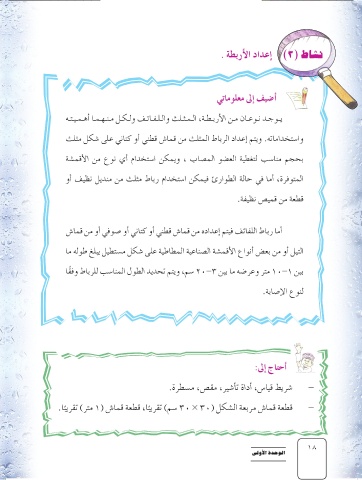 نشاط (٣) إعداد الأربطة .
أضيف إلى معلوماتي
يوجد نوعان من الأربطة، المثلث واللفائف ولكل منهما أهميته
واستخداماته. ويتم إعداد الرباط المثلث من قماش قطني أو كتاني على شكل مثلث
بحجم مناسب لتغطية العضو المصاب ، ويمكن استخدام أي نوع من الأقمشة
المتوفرة، أما في حالة الطوارئ فيمكن استخدام رباط مثلث من منديل نظيف أو
قطعة من قميص نظيفة.
أما رباط اللفائف فيتم إعداده من قماش قطني أو كتاني أو صوفي أو من قماش
التيل أو من بعض أنواع الأقمشة الصناعية المطاطية على شكل مستطيل يبلغ طوله ما
بين ١-١٠ متر وعرضه ما بين ٣-٢٠ سم، ويتم تحديد الطول المناسب للرباط وفقًا
لنوع الإصابة.
أحتاج إلى:
– شريط قياس، أداة تأشير، مقص، مسطرة.
– قطعة قماش مربعة الشكل (٣٠ × ٣٠ سم) تقريبًا، قطعة قماش (١ متر) تقريبًا.
١٨
الوحدة الأولى